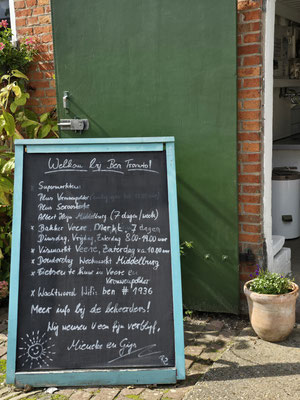 Welkom bij Ben Tramto!
Supermarkten:
Plus Vrouwenpolder
Plus Serooskerke
Albert Heijn Middelburg (7 dagen/week)
x Bakker Veere Markt 7 dagen
Dinsdag, Vrijdag, Zaterdag 8.00-14.00 uur
x Vismarkt Veere, Zaterdag va 10.00 uur
x Donderdag Weekmarkt Middelburg
x Fietsen te huur in Veere en
Vrouwenpolder
x Wachtwoord Wifi: ben # 1936
Meer info bij de beheerders!
Wij wensen U een fijn verblijf,
Mieneke en Gijs